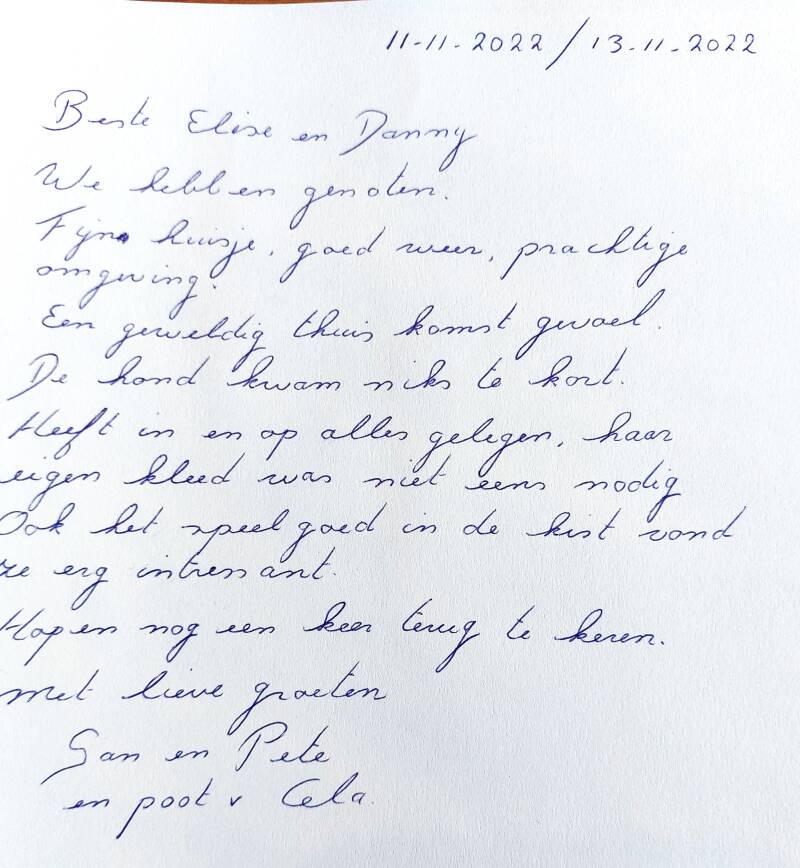 11-11-2022 / 13-11-2022
Beste Elise en Danny
We hebben genoten.
Fijn huisje, goed weer, prachtige
omgeving.
Een geweldig thuis komst gevoel.
De hond kwam niks te kort.
Heeft in en op alles gelegen, haar
eigen kleed was niet eens nodig
Ook het speelgoed in de kist vond
ze erg intressant.
Hopen nog een keer terug te keren.
met lieve groeten
en Pete
en poot v Cela.